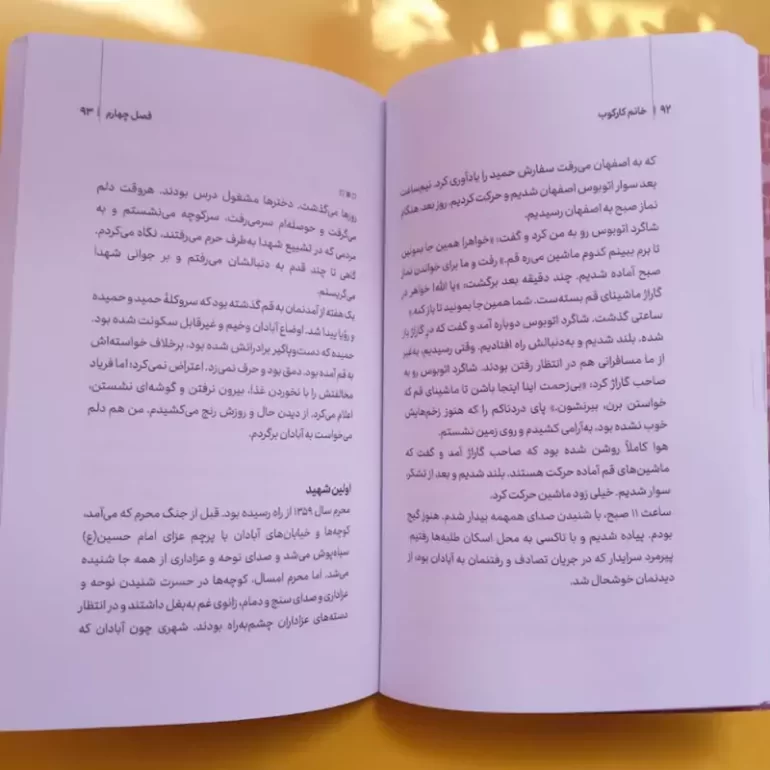 ۹۲ | خانم کارکوب
که به اصفهان می‌رفت سفارش حمید را یادآوری کرد. نیم‌ساعت
بعد سوار اتوبوس اصفهان شدیم و حرکت کردیم. روز بعد هنگام
نماز صبح به اصفهان رسیدیم.
شاگرد اتوبوس رو به من کرد و گفت: «خواهر! همین جا بمونین
تا برم ببینم کدوم ماشین می‌ره قم.» رفت و ما برای خواندن نماز
صبح آماده شدیم. چند دقیقه بعد برگشت: «یا الله! خواهر در
گاراژ ماشینای قم بسته‌ست. شما همین‌جا بمونید تا باز کنه.»
ساعتی گذشت. شاگرد اتوبوس دوباره آمد و گفت که در گاراژ باز
شده. بلند شدیم و به‌دنبالش راه افتادیم. وقتی رسیدیم، به‌غیر
از ما مسافرانی هم در انتظار رفتن بودند. شاگرد اتوبوس رو به
صاحب گاراژ کرد: «بی‌زحمت اینا اینجا باشن تا ماشینای قم که
خواستن برن، ببرنشون.» پای دردناکم را که هنوز زخم‌هایش
خوب نشده بود، به‌آرامی کشیدم و روی زمین نشستم.
هوا کاملاً روشن شده بود که صاحب گاراژ آمد و گفت که
ماشین‌های قم آماده حرکت هستند. بلند شدیم و بعد از تشکر،
سوار شدیم. خیلی زود ماشین حرکت کرد.
ساعت ۱۱ صبح، با شنیدن صدای همهمه بیدار شدم. هنوز گیج
بودم. پیاده شدیم و با تاکسی به محل اسکان طلبه‌ها رفتیم.
پیرمرد سرایدار که در جریان تصادف و رفتنمان به آبادان بود، از
دیدنمان خوشحال شد.
فصل چهارم | ۹۳
روزها می‌گذشت. دخترها مشغول درس بودند. هروقت دلم
می‌گرفت و حوصله‌ام سرمی‌رفت، سرکوچه می‌نشستم و به
مردمی که در تشییع شهدا به‌طرف حرم می‌رفتند، نگاه می‌کردم.
گاهی تا چند قدم به دنبالشان می‌رفتم و بر جوانی شهدا
می‌گریستم.
یک هفته از آمدنمان به قم گذشته بود که سروکلۀ حمید و حمیده
و رؤیا پیدا شد. اوضاع آبادان وخیم و غیرقابل سکونت شده بود.
حمیده که دست‌وپاگیر برادرانش شده بود، برخلاف خواسته‌اش
به قم آمده بود. دمق بود و حرف نمی‌زد. اعتراض نمی‌کرد؛ اما فریاد
مخالفتش را با نخوردن غذا، بیرون نرفتن و گوشه‌ای نشستن،
اعلام می‌کرد. از دیدن حال و روزش رنج می‌کشیدم. من هم دلم
می‌خواست به آبادان برگردم.
اولین شهید
محرم سال ۱۳۵۹ از راه رسیده بود. قبل از جنگ محرم که می‌آمد،
کوچه‌ها و خیابان‌های آبادان با پرچم عزای امام حسین(ع)
سیاه‌پوش می‌شد و صدای نوحه و عزاداری از همه جا شنیده
می‌شد. اما محرم امسال، کوچه‌ها در حسرت شنیدن نوحه و
عزاداری و صدای سنج و دمام، زانوی غم به‌بغل داشتند و در انتظار
دسته‌های عزاداران چشم‌به‌راه بودند. شهری چون آبادان که